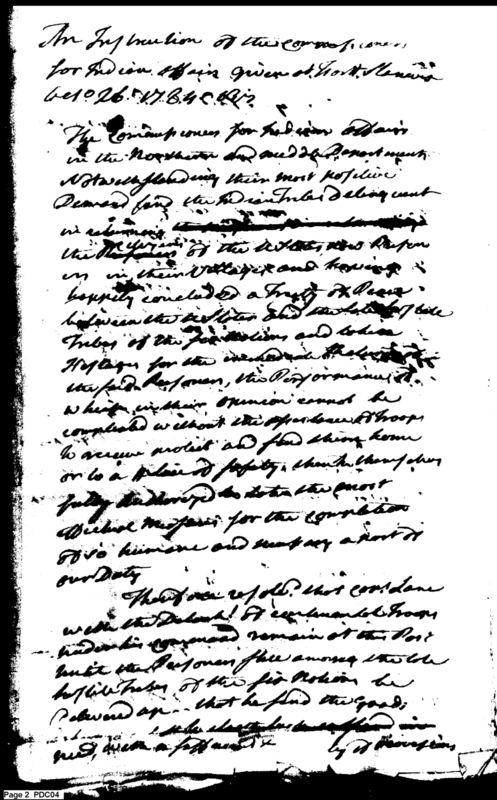 An Instruction of the commissioners
for Indian affairs given at Fort Stanwix
Octo 26th 1784
The Commissioners for Indian Affairs
in the Northern and middle Department
Notwithstanding their most positive
Demand find the Indian Tribes delinquent
in returning
the of the States now Prison
ers in their Villages and having
happily concluded a Treaty of Peace
between the States and the late hostile
Tribes of the Six Nations and taken
Hostages for the immediate
the said Prisoners, the Performance of
which in their opinion cannot be
completed without the assistance of Troops
to receive protect and send them home
or to a place of safety, think themselves
fully authorized to take the most
effectual Measures for the completion
of so humane and necessary a part of
our Duty
Therefore resold. that Cor. Lane
with the Detacht. of continental Troops
under his command remain at this Post
until the Prisoners still among the late
hostile Tribes of the six Nations be
Delivered up that he find the guard
with a sufficient
of Provisions
Page 2 PDC04